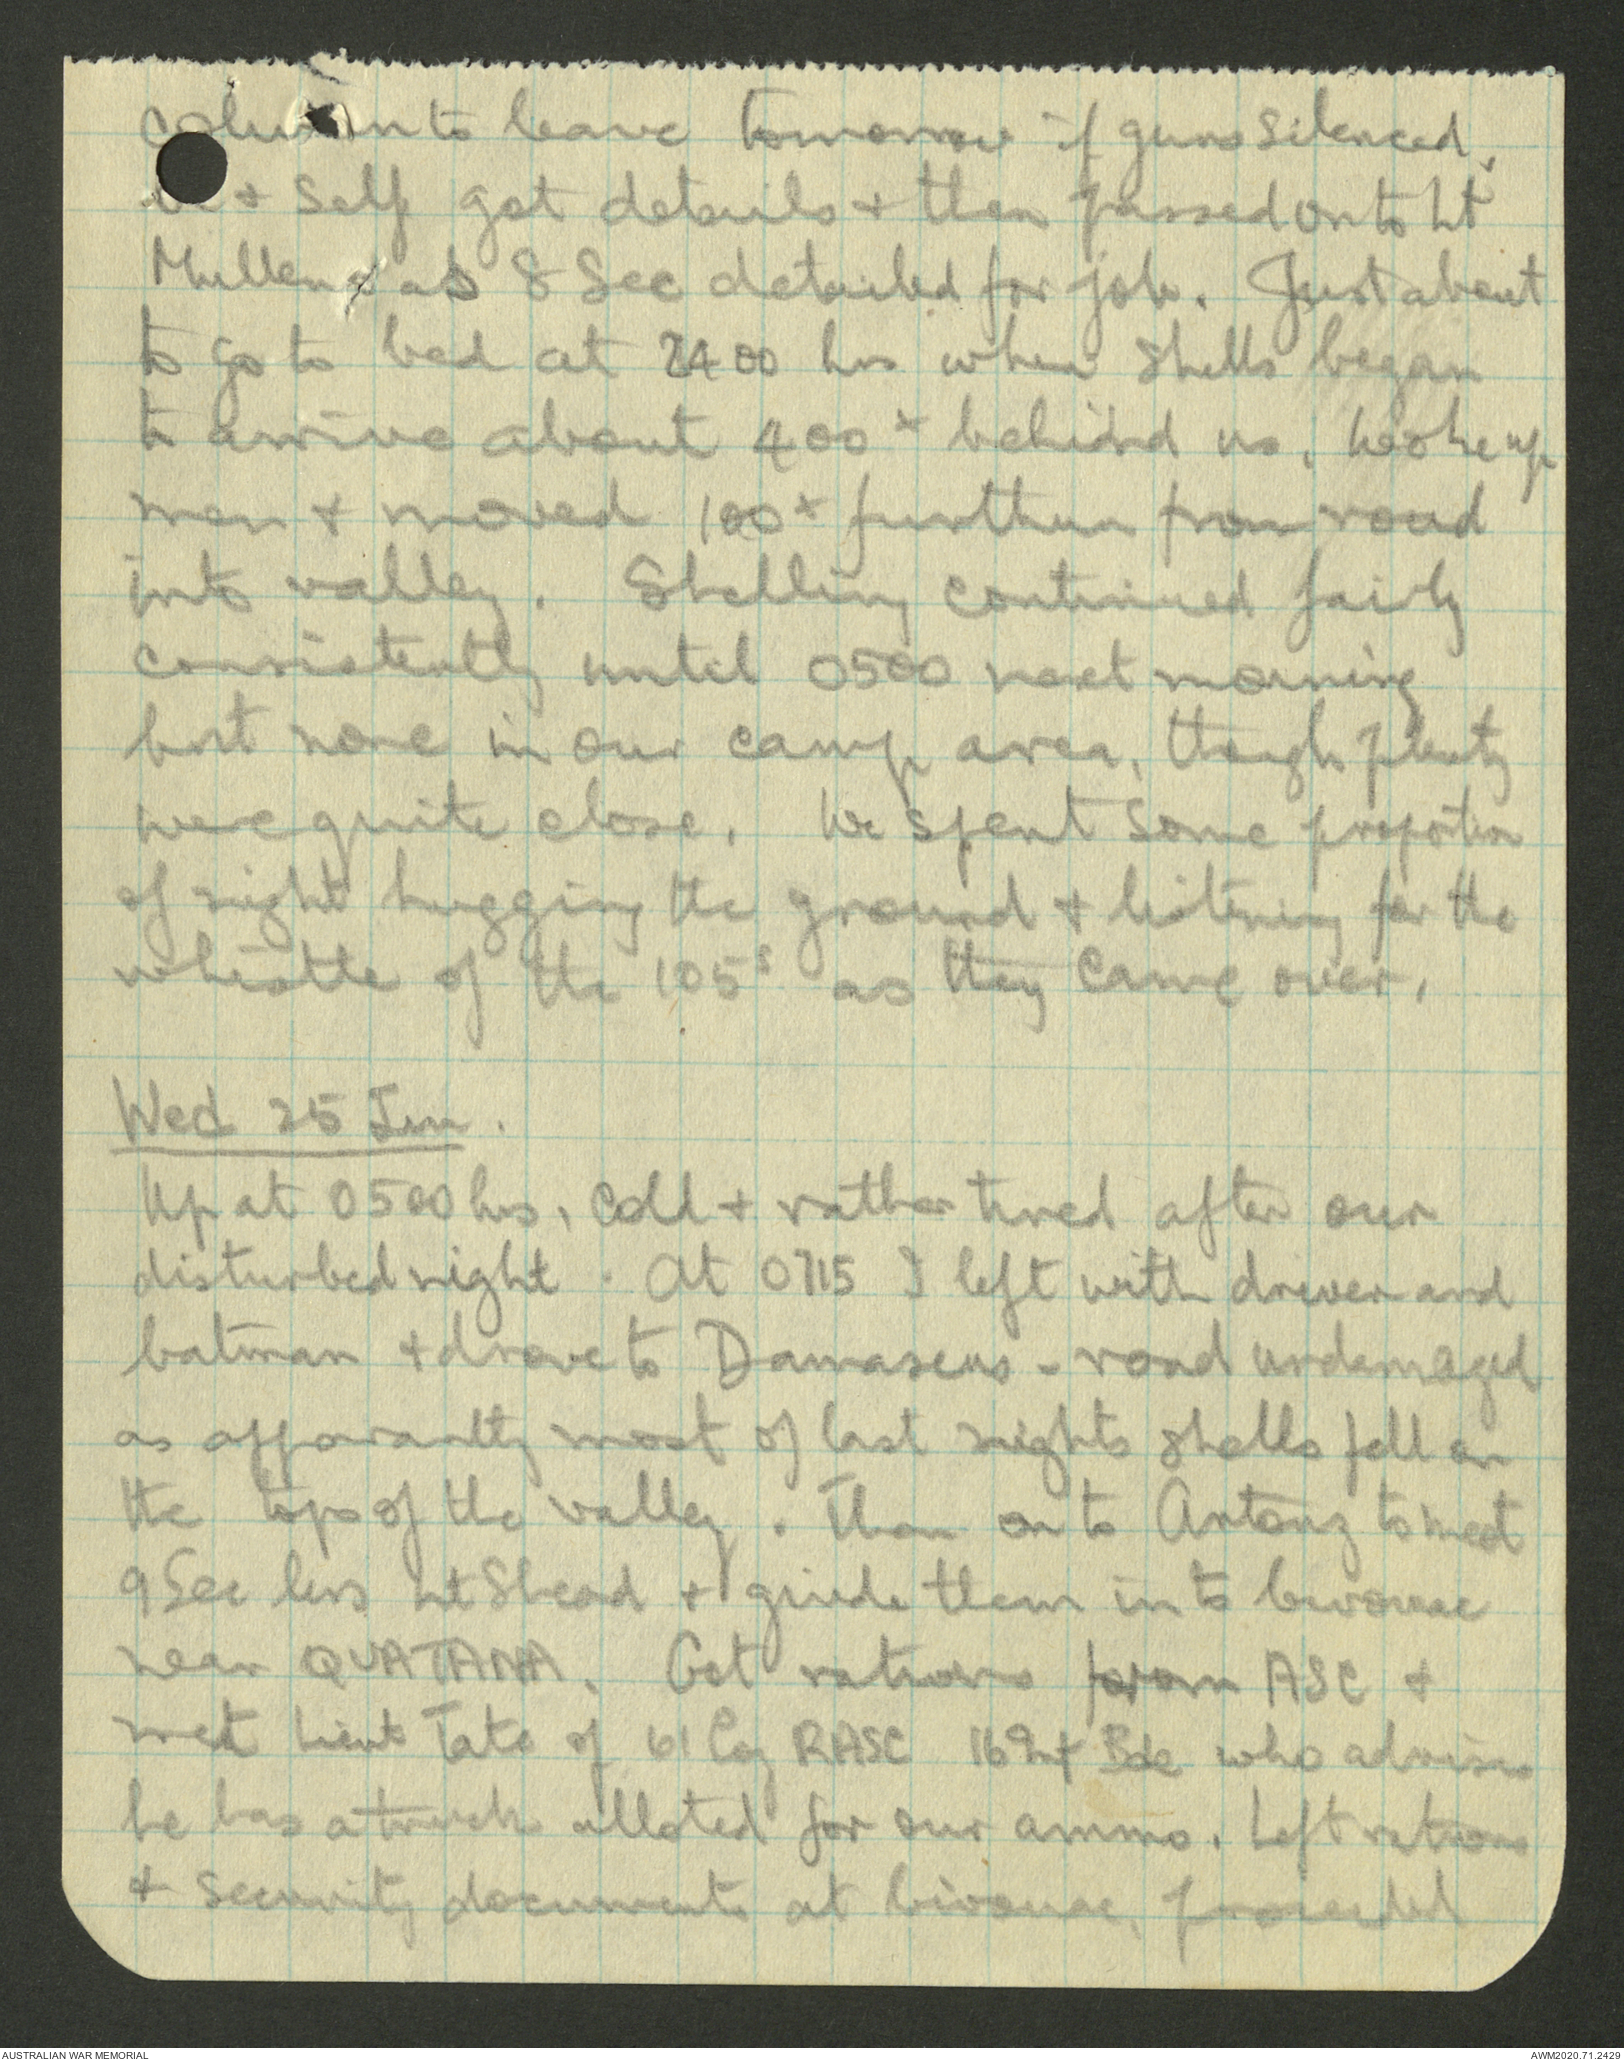 column to leave tomorrow if guns silenced.
+ Self got details + then passed onto Lt
Mullens as 8 Sec detailed for job. Just about
to go to bed at 2400 hrs when shells began
to arrive about 400x behind us, woke up
men + moved 100x further from road
into valley. Shelling continued fairly
consistently until 0500 next morning
but none in our camp area, though plenty
were quite close. We spent some proportion
of night hugging the ground + listening for the
whistle of the 105s as they came over.
Wed 25 Jun.
Up at 0500 hrs, cold + rather tired after our
disturbed night. At 0715 I left with driver and
batman + drove to Damascus - road undamaged
as apparantly most of last nights shells fell on
the tops of the valley. Then on to Artouz to meet
9 Sec less Lt Shead + guide them into bivouac
near QUATANA. Got rations from ASC +
met Lieut Tate of 61 Coy RASC 16 Inf Bde who advises
he has a truck alloted for our ammo. Left rations
& security documents at bivouac, proceeded
AUSTRALIAN WAR MEMORIAL
AWM2020.71.2429